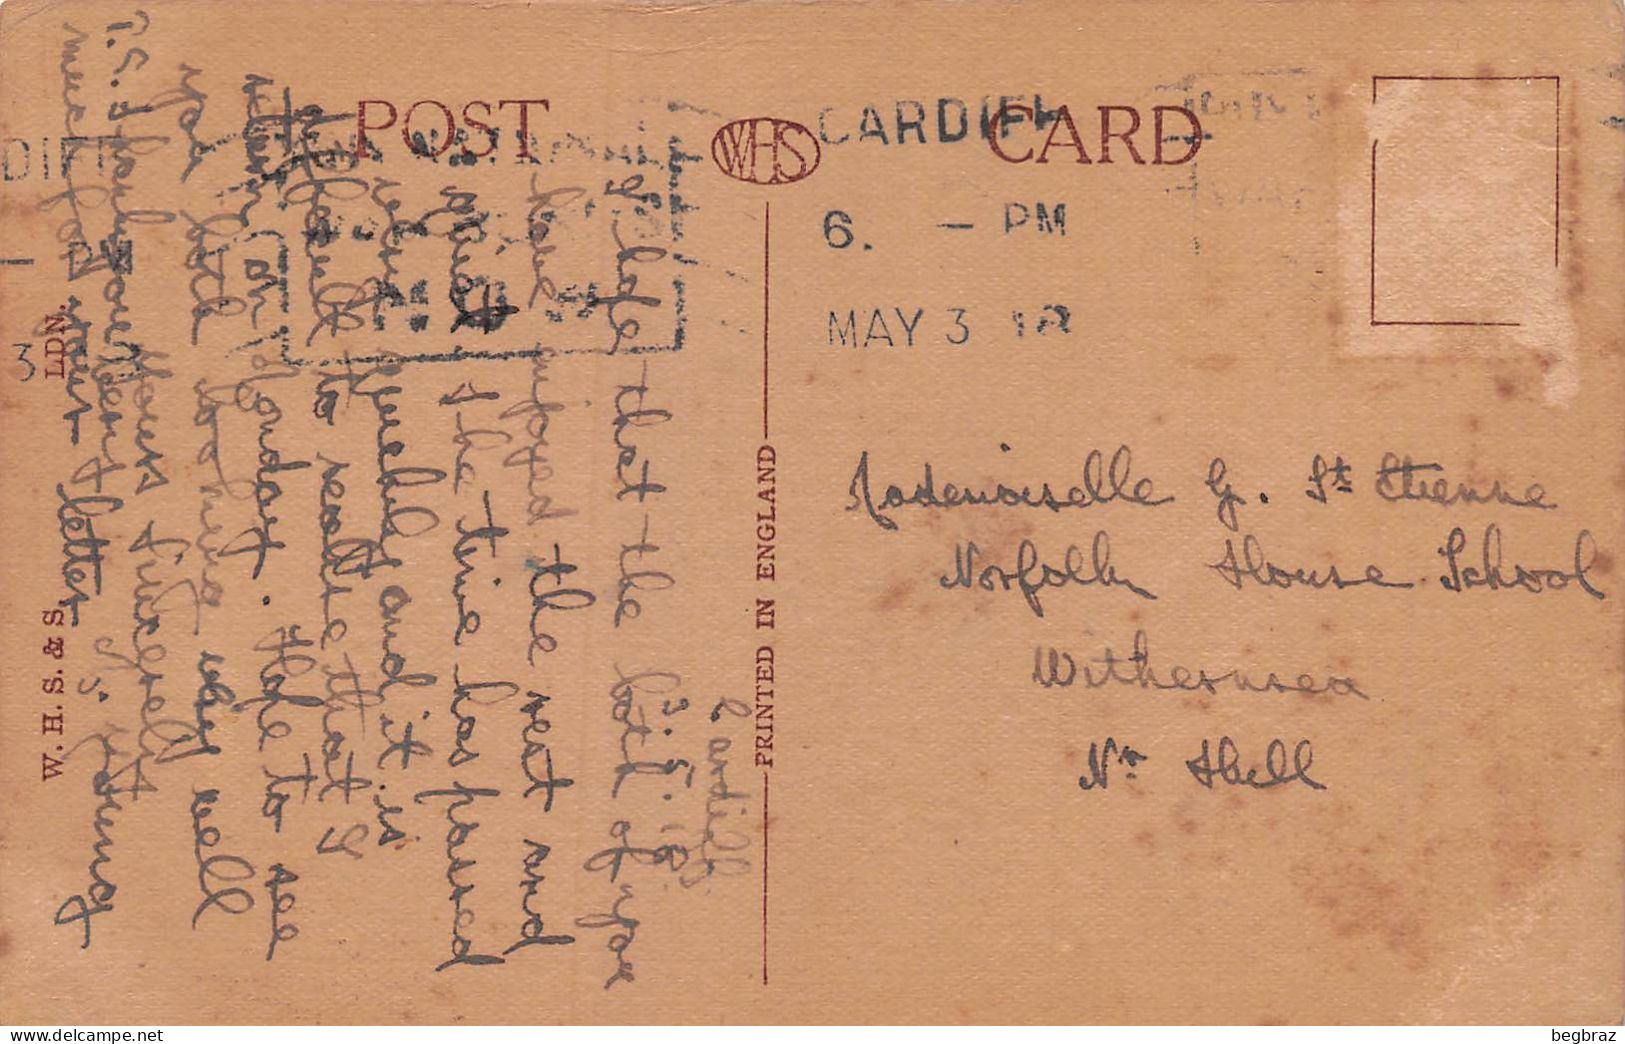 POST CARD
WHS
CARDIFF
6. - PM
MAY 3 18
Cardiff.
3.5.18.
I hope that the both of you
have enjoyed the rest and
quiet. The time has passed
very quickly and it is
difficult to realise that I
return on Monday. Hope to see
you both looking very well
Yours sincerely
G. Young
P.S. Thank you very
much for your letter
Mademoiselle G. St Etienne
Norfolk House School
Withernsea
Nr Hull
PRINTED IN ENGLAND
W. H. S. & S. LDN.
DIFF
3
begbraz